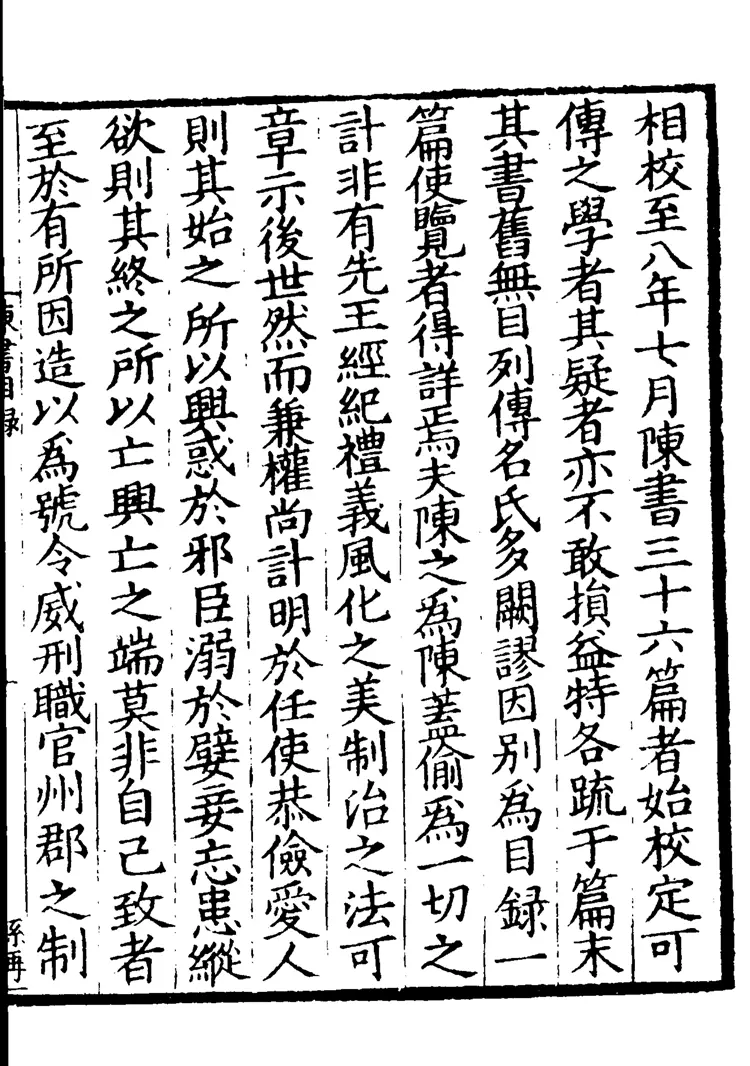 相校至八年七月陳書三十六篇者始校定可
傳之學者其疑者亦不敢損益特各疏于篇末
其書舊無目列傳名氏多闕謬因別為目録一
篇使覽者得詳焉夫陳之為陳蓋偷為一切之
計非有先王經紀禮義風化之美制治之法可
章示後世然而兼權尚計明於任使恭儉愛人
則其始之所以興惑於邪臣溺於嬖妾忘患縱
欲則其終之所以亡興亡之端莫非自己致者
至於有所因造以為號令威刑職官州郡之制
陳書目録